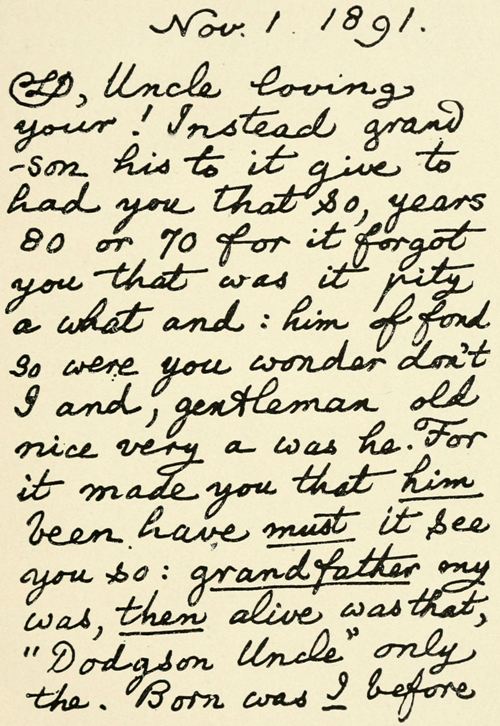 Nov. 1. 1891.
CD, Uncle loving
your! Instead grand
-son his to it give to
had you that so, years
80 or 70 for it forgot
you that was it pity
a what and : him of fond
so were you wonder don't
I and, gentleman old
nice very a was he. For
it made you that him
been have must it see
you so : grandfather my
was, then alive was that,
"Dodgson Uncle" only
the. Born was I before